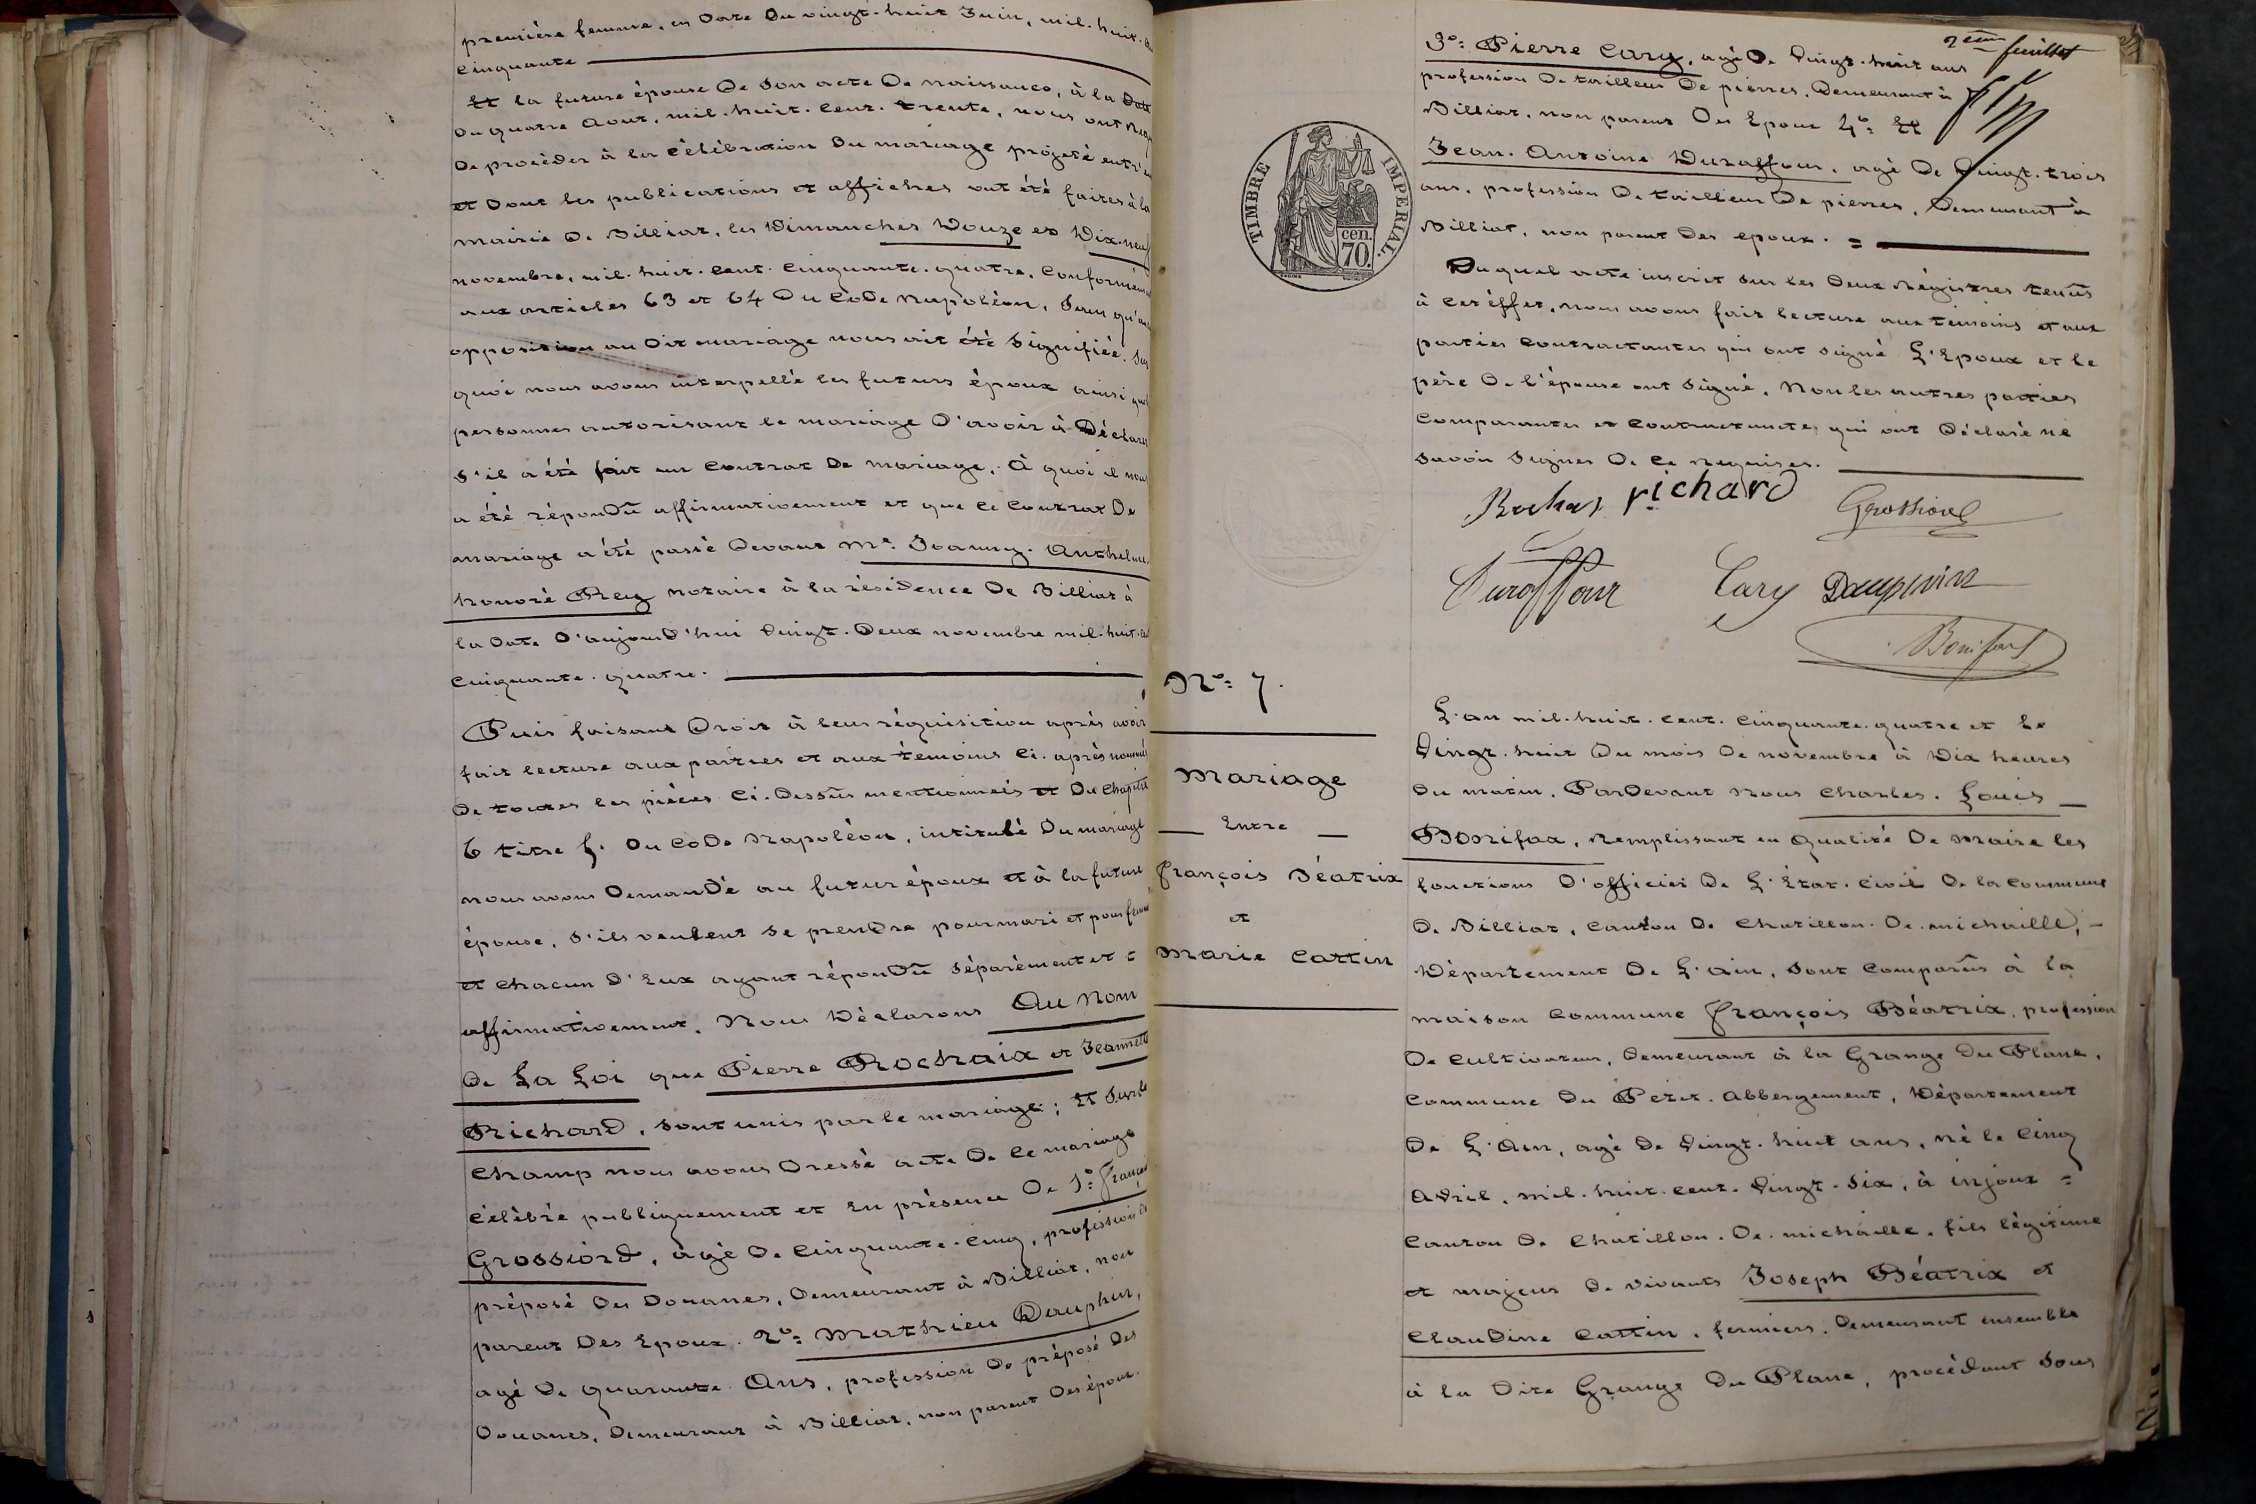 première femme, en Date Du vingt-huit Juin, mil-huit-
cinquante
Et la future épouse De Son acte De naissance, à la Date
Du quatre Aout, mil-huit-cent-trente, nous ont
De procèder à la cèlèbration Du mariage projeté entr'
et Dont les publications et affiches ont été faites à la
mairie De Billiat, les Dimanches Douze et Dix-neuf
novembre, mil-huit-cent-cinquante-quatre, Conformèment
aux articles 63 et 64 Du CoDe Napolèon, Sans qu'
opposition au Dit mariage nous ait été Signifiée. Sur
quoi nous avons interpellè les futurs époux ainsi que
personnes autorisant le mariage D'avoir à Déclarer
S'il a été fait un Contrat De mariage, à quoi il nous
a été rèponDu affirmativement et que ce Contrat De
mariage a été passè Devant Me. Joanny-Anthelme
honoré Rey notaire à la résiDence De Billiat à
la Date D'aujourD'hui Vingt-Deux novembre mil-huit-
Cinquante-quatre.
Puis faisant Droit à leur réquisition après avoir
fait lecture aux parties et aux tèmoins Ci-après nommés
De toutes les pièces Ci-Dessus mentionneés et Du Chapitre
6 titre 5. Du CoDe Napolèon, intitulé Du mariage
nous avons DemanDé au futur époux et à la future
épouse, S'ils veulent Se prenDre pour mari et pour femme
et Chacun D'Eux ayant réponDu Séparèment et =
affirmativement. Nous Déclarons Au Nom
De La Loi que Pierre Rochaix et Jeannette
Richard, Sont unis par le mariage; Et Sur le
Champ nous avons Dressè acte De ce mariage
cèlèbrè publiquement et en prèsence De 1o: François
Grossiord, agè De Cinquante-Cinq, profession De
préposé Des Douanes, Demeurant à Billiat, non
parent Des Epoux. 2o: Mathieu Dauphin,
agè De quarante Ans, profession De préposé Des
Douanes, Demeurant à Billiat, non parent Des époux.
2ème feuillet
3o: Pierre Cary, agè De Vingt-huit ans
profession De tailleur De pierres, Demeurant à
Billiat, non parent Des Epoux 4o: Et
Jean-Antoine Duraffour, agè De Vingt-trois
ans, profession De tailleur De pierres, Demeurant à
Billiat, non parent Des epoux. =
TIMBRE IMPERIAL.
cen.
70.
Duquel acte inscrit Sur les Deux Règistres tenus
à cet éffet, nous avons fait lecture aux tèmoins et aux
parties Contractantes qui ont Signé L'Epoux et le
père De l'épouse ont Signè, Non les autres parties
Comparantes et Contractantes qui ont Déclarè ne
Savoir Signer De ce Requises.
Rochas richard Grossiord
Duraffour Cary Dauphin
Bonifax
No: 7.
Mariage
Entre
François Béatrix
et
Marie Cattin
L'an mil-huit-cent-cinquante-quatre et le
Vingt-huit Du mois De novembre à Dix heures
Du matin, ParDevant Nous Charles-Louis
Bonifax, Remplissant en Qualité De Maire les
fonctions D'officier De L'Etat-civil De la Commune
De Billiat, Canton De Chatillon-De-michaille, -
Département De L'Ain, Sont Comparus à la
maison Commune François Béatrix, profession
De Cultivateur, Demeurant à la Grange Du Plane,
Commune Du Petit-Abbergement, Département
De L'Ain, agè De Vingt-huit ans, nè le Cinq
Avril, mil-huit-cent-Vingt-Six, à injoux =
Canton De Chatillon-De-michaille, fils légitime
et majeur De vivants Joseph Béatrix et
ClauDine Cattin, fermiers, Demeurant ensemble
à la Dite Grange Du Plane, procèdant Sous